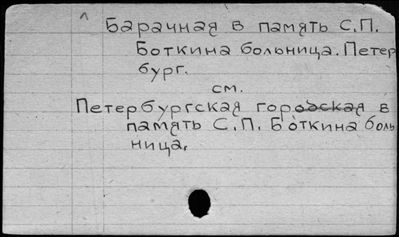 Барачная в память С.П.
Боткина больница. Петер
бург.
см.
Петербургская городская в
память С.П. Боткина боль
ница.